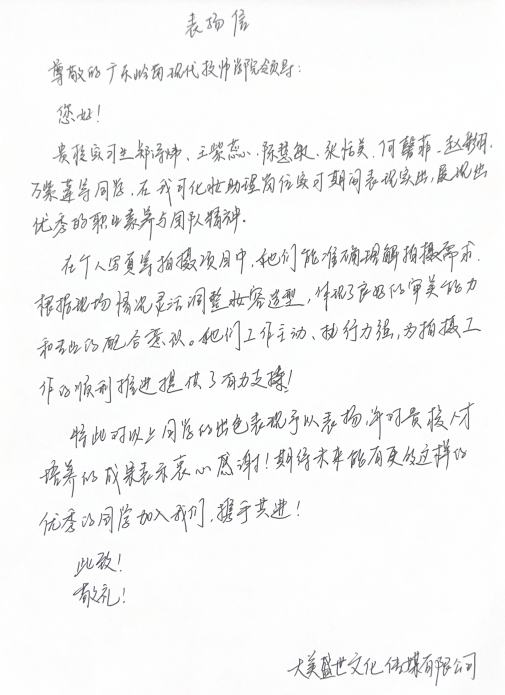 表扬信
尊敬的广东岭南现代技师学院领导：
您好！
贵校实习生郑诗炜、王紫蕊、陈慧敏、张恬美、何馨菲、赵
万紫莲等同学，在我司化妆助理岗位实习期间表现突出，展现出
优秀的职业素养与团队精神。
在个人写真等拍摄项目中，他们能准确理解拍摄需求，
根据现场情况灵活调整妆容造型，体现了良好的审美能力
和专业的配合意识。他们工作主动、执行力强，为拍摄工
作的顺利推进提供了有力支撑！
特此对以上同学的出色表现予以表扬，并对贵校人才
培养的成果表示衷心感谢！期待未来能有更多这样的
优秀的同学加入我们，携手共进！
此致！
敬礼！
大美盛世文化传媒有限公司